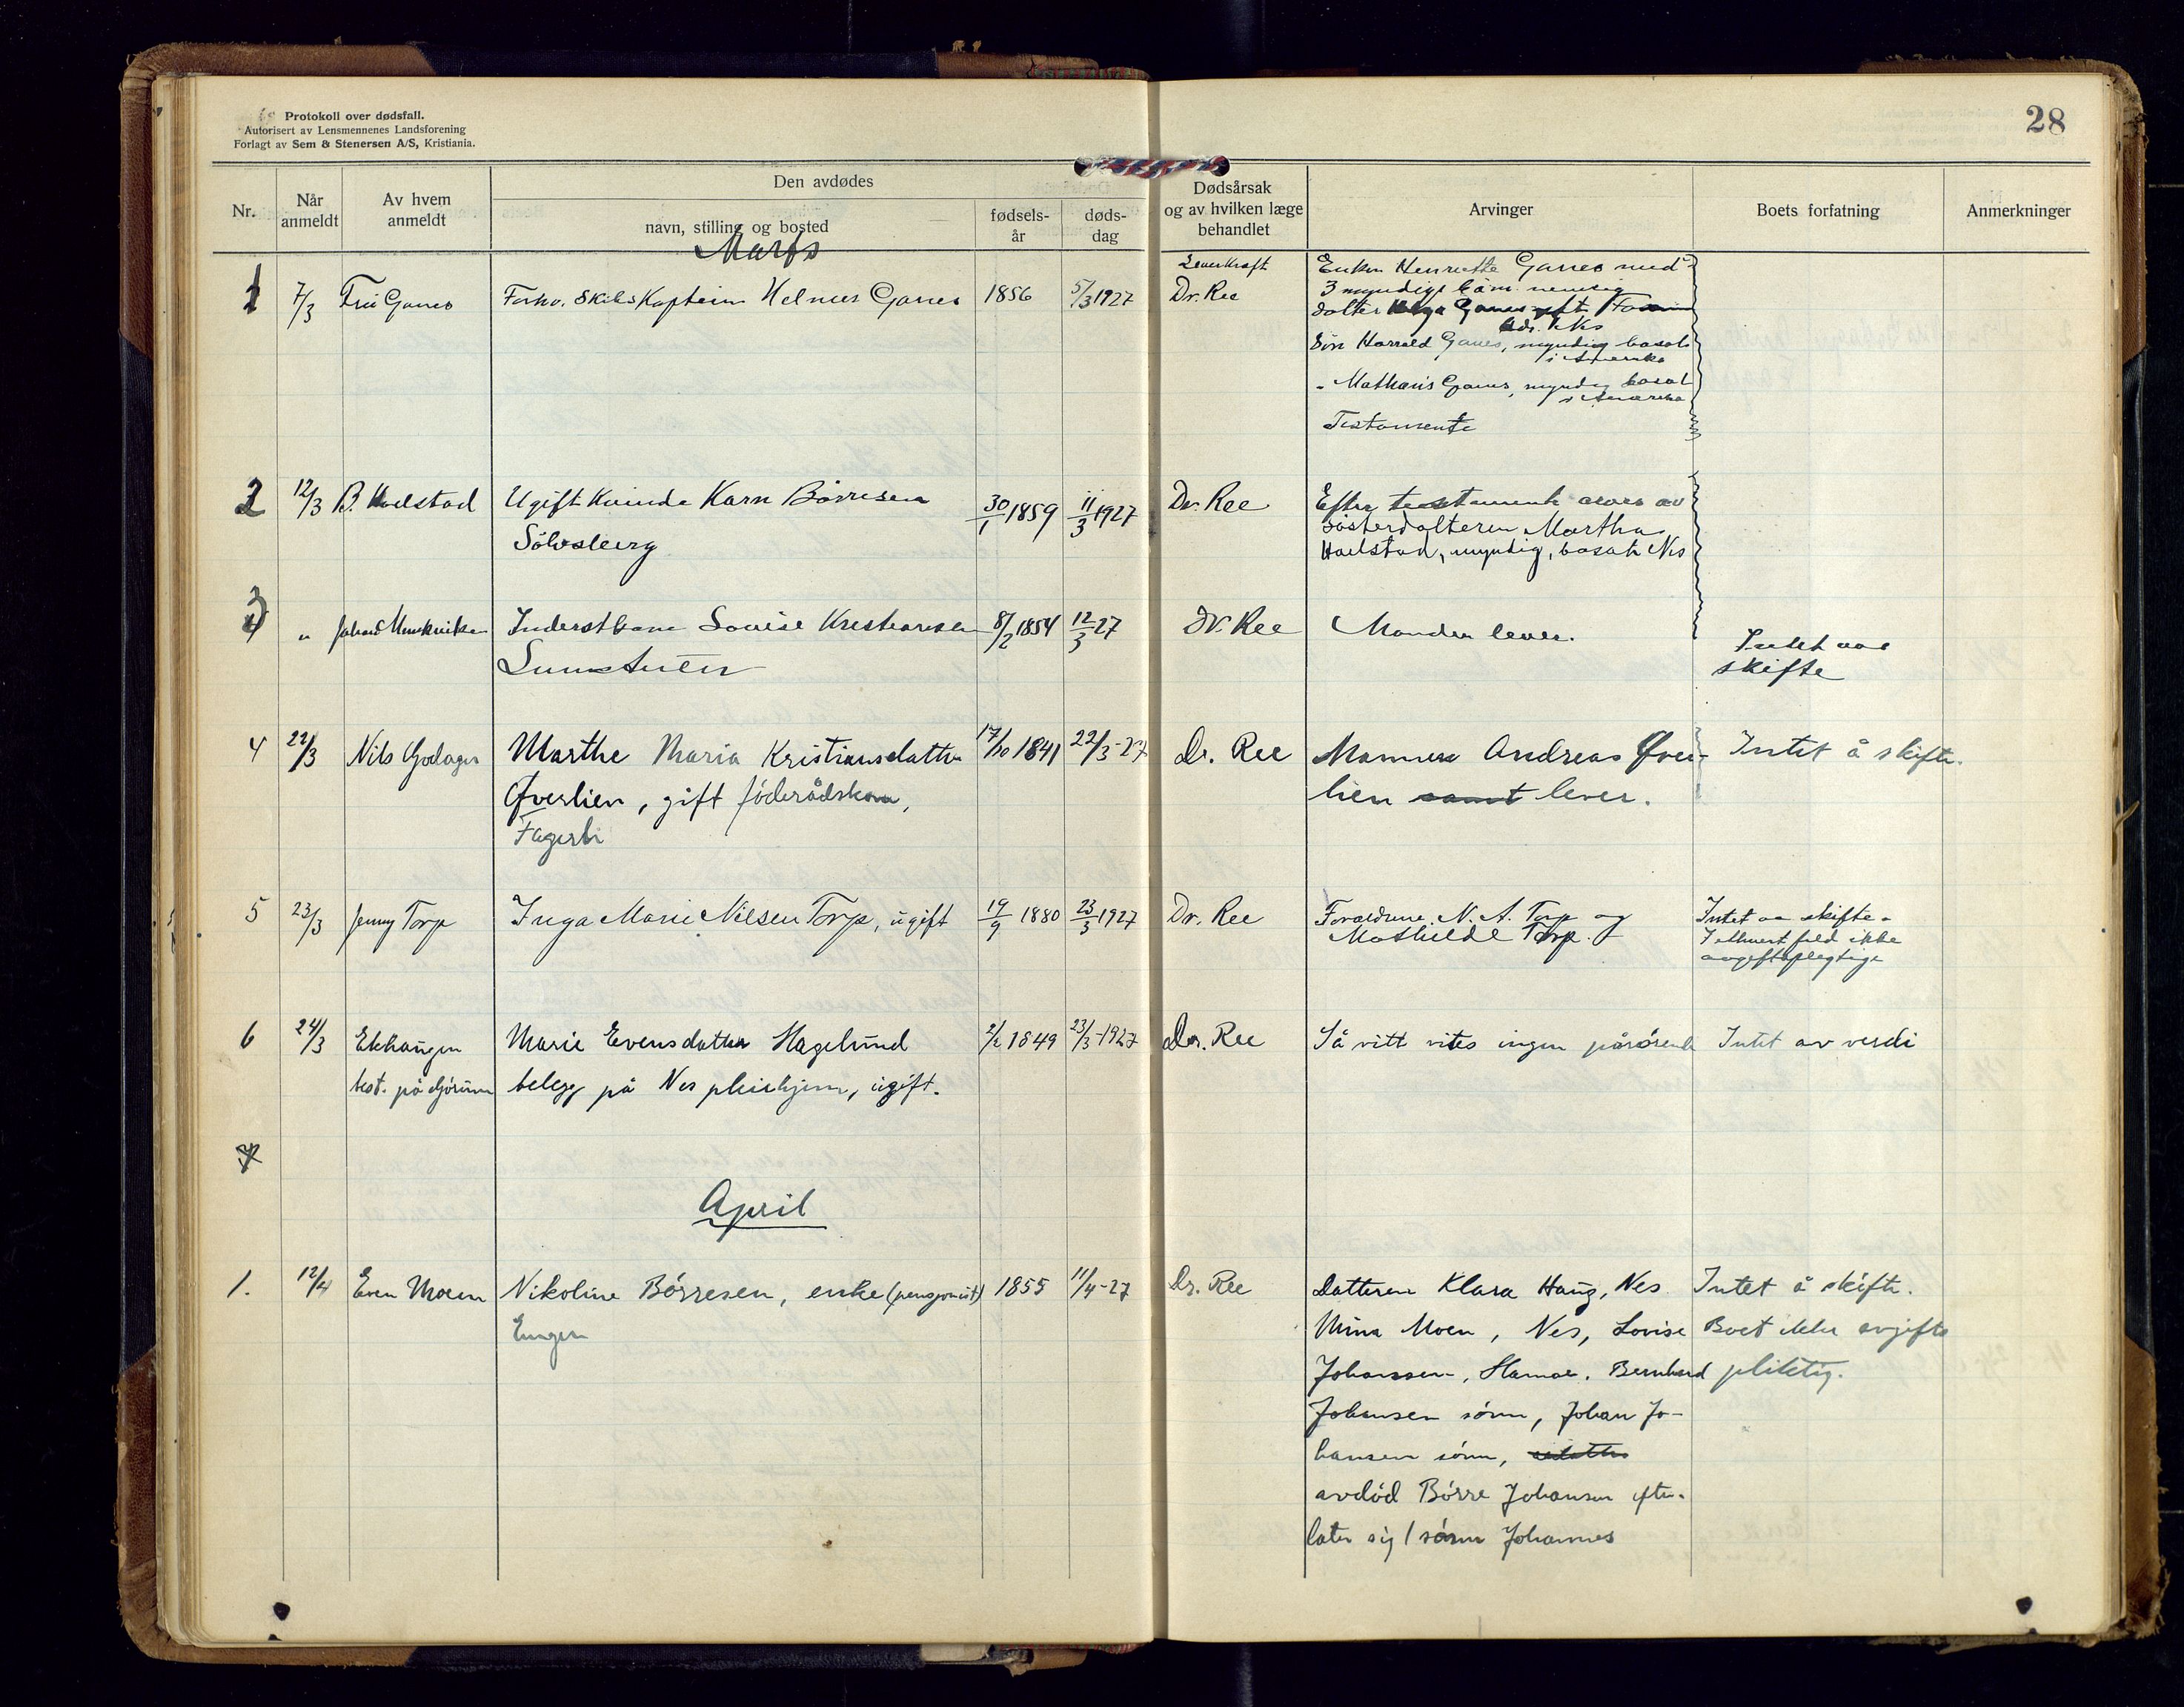 Protokoll over dødsfall.
Autorisert av Lensmennenes Landsforening
Forlagt av Sem & Stenersen A/S, Kristiania.
28
Nr.
Når
anmeldt
Av hvem
anmeldt
Den avdødes
navn, stilling og bosted
fødsels-
år
døds-
dag
Dødsårsak
og av hvilken læge
behandlet
Arvinger
Boets forfatning
Anmerkninger
Marts
1 7/3 Frú Ganes Forhv. Skibskaptein Helmer Ganes 1856 5/3 1927
Leverkraft
Dr. Ree
Enken Henriette Ganes med
3 myndige
datter Helga Ganes gift
Nes
Sön Harrald Ganes, myndig bosat
i Amerika
- Mathæus Ganes, myndig bosat
i Amerika
Testamente
2 12/3 B. Hoelstad Ugift Kvinde Karn Börresen 30/1 1859 11/3 1927 Dr. Ree
Sölvsberg
Efter testamente arves av
Sösterdatteren Martha
Hoelstad, myndig, bosat Nes
3 " Inderstkone Lovise Kristiansen 8/2 1854 12/3 27 Dr. Ree Manden lever.
Intet aa
skifte
4 22/3 Nils Godager Marthe Maria Kristiansdatter 17/10 1841 22/3-27 Dr. Ree Mannen Andreas Øver- Intet å skifte.
Øverlien, gift föderådskone, lien samt lever.
Fagerli
5 23/3 Jenny Torp Inga Marie Nilsen Torp, úgift 19/9 1880 23/3 1927 Dr. Ree Forældrene N. A. Torp og
Mathilde Torp.
Intet aa skifte.
I ethvert fald ikke
avgiftspligtige
6 24/3 Ekhaugen Marie Evensdatter Hagelúnd 2/2 1849 23/3-1927 Dr. Ree Så vitt vites ingen pårörende Intet av verdi
best. på belegg på Nes pleiehjem, úgift.
7
April
1. 12/4 Even Moen Nikoline Börresen, enke (pensjonist) 1855 11/4-27 Dr. Ree
Engen
Datteren Klara Haúg, Nes
Mina Moen, Nes, Lovise
Johanssen, Hamar. Bernhard
Johansen sönn, Johan Jo-
hansen sönn,
avdöd Börre Johansen efter-
later sig 1 sönn Johannes
Intet å skifte.
Boet ikke avgifts
pliktig.